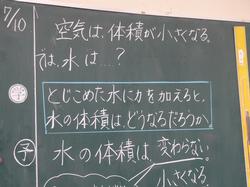 7/10
空気は、体積が小さくなる。
では、水は…?
学
とじこめた水に力を加えると、
水の体積は、どうなるだろうか。
予
水の体積は、変わらない。
小さくなる。